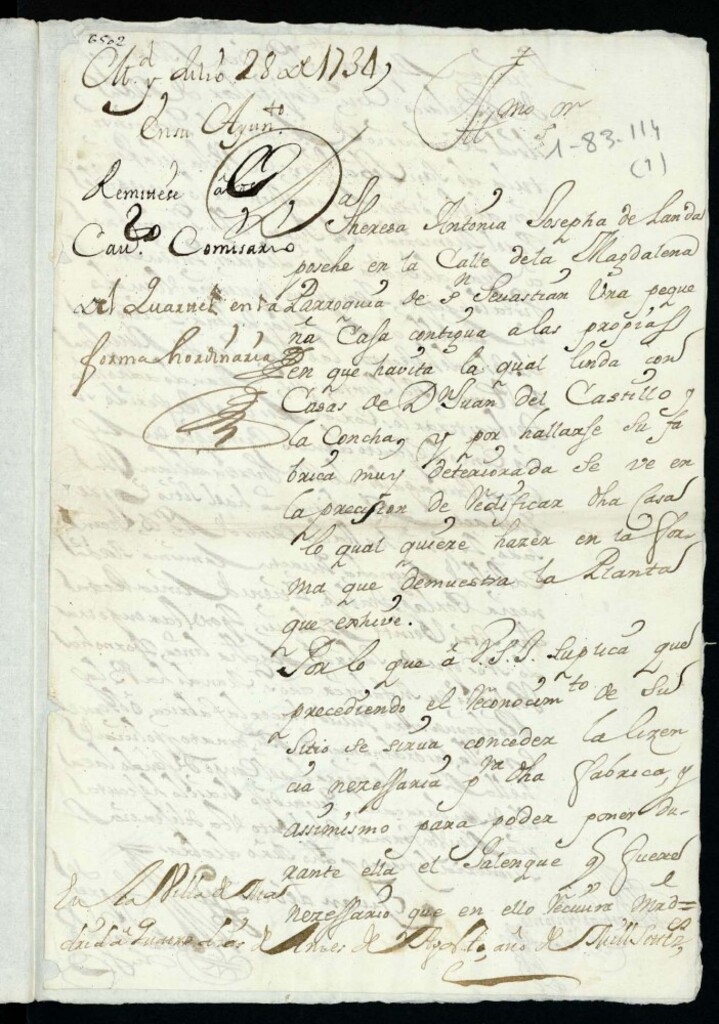 M.d y Julio 28 de 1734,
En su Ayun.to
Remitese a
Cav.o Comisario
del Quartel en la
forma hordinaria
Yllmo Sr
1-83-114
(1)
Dª Theresa Antonia Josepha de Landa
posehe en la Calle de la Magdalena
Parroquia de Sn Sevastian Una peque
ña Casa contigua a las propias
en que havita la qual linda con
Casas de Dn Juan del Castillo y
la Concha, y por hallarse su fa
brica muy deteriorada se ve en
la precision de redificar dha Casa
lo qual quiere hazer en la for-
ma que demuestra la Planta
que exhive.
Por lo que a V.S.I. suplica que
precediendo el reconocim.to de su
sitio se sirva conceder la lizen
cia nezessaria pª dha fabrica, y
assimismo para poder poner du-
rante ella el Palenque q fuere
nezessario que en ello recivira Mrd=
En la Villa de Ma
drid a dias de el mes de Agosto, año de Mill